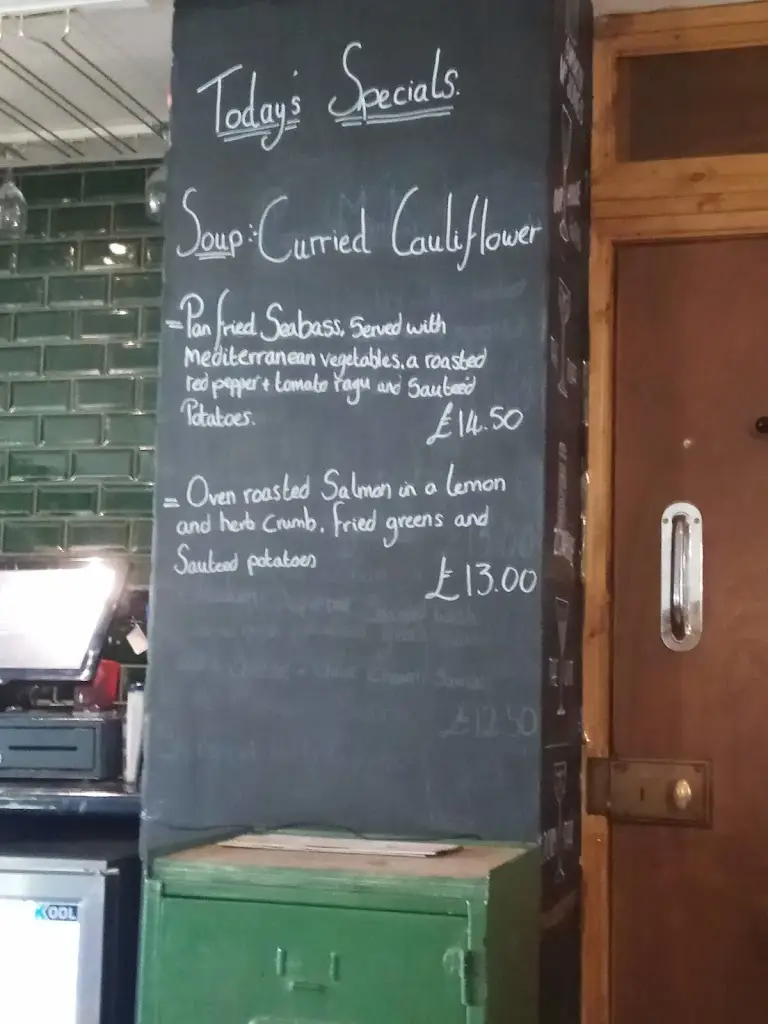 Today's Specials.
Soup: Curried Cauliflower
= Pan fried Seabass, Served with
Mediterranean vegetables, a roasted
red pepper + tomato ragu and Sauteed
Potatoes.
£14.50
= Oven roasted Salmon in a lemon
and herb Crumb, fried greens and
Sauteed potatoes
£13.00
£12.50
KOOL